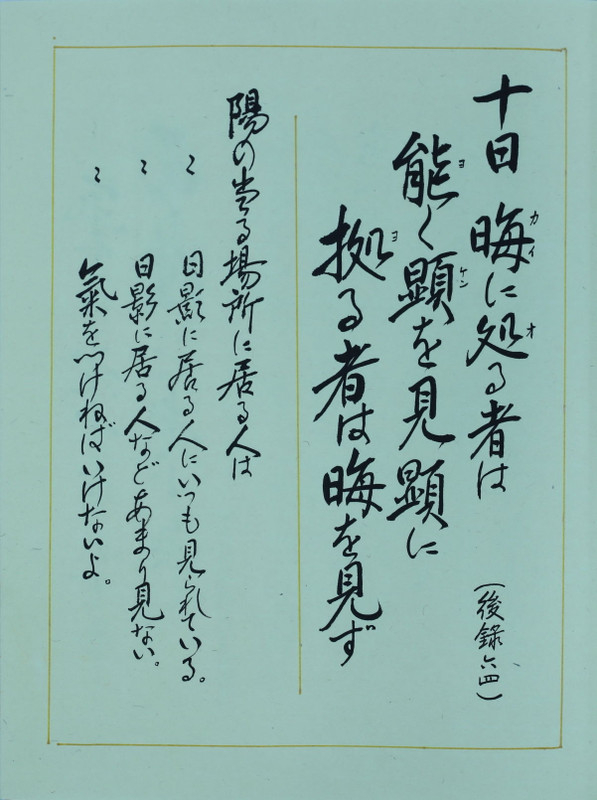 十日 晦に処る者は
能く顕を見 顕に
拠る者は晦を見ず
(後録六四)
陽の当る場所に居る人は
〻 日影に居る人にいつも見られている。
〻 日影に居る人などあまり見ない。
〻 氣をつけねばいけないよ。